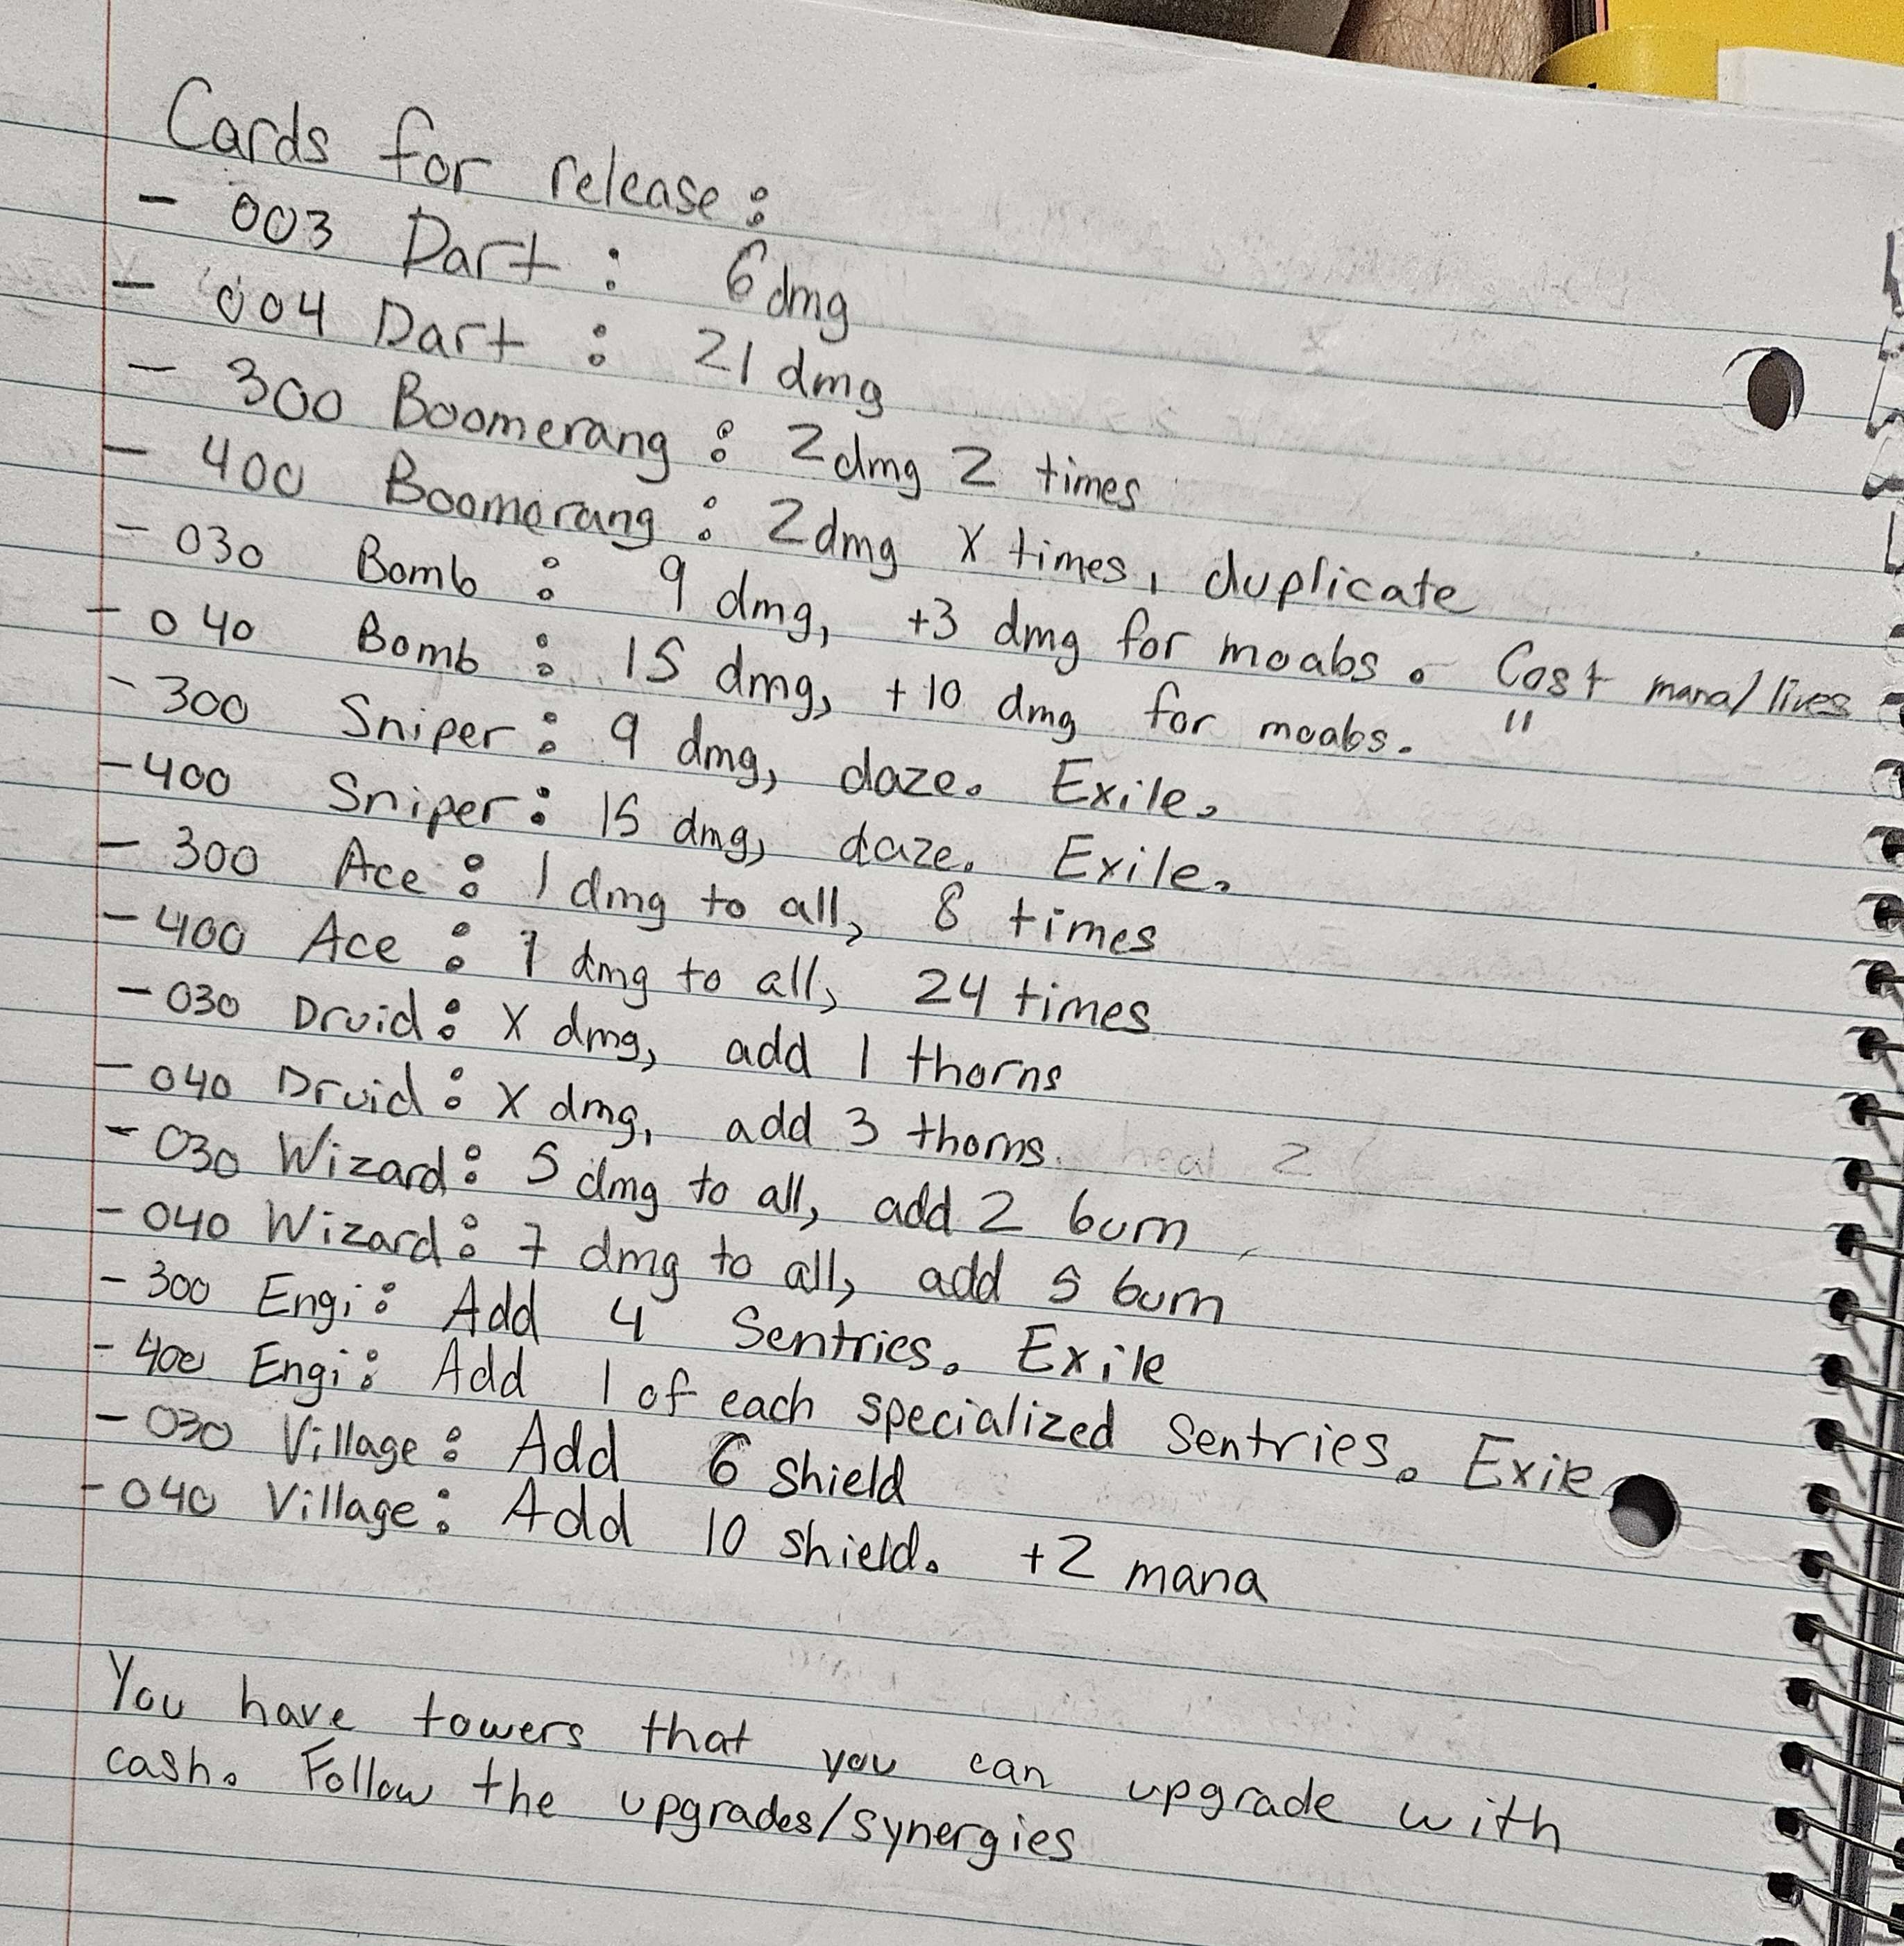 Cards for release:
- 003 Dart: 6 dmg
- 004 Dart: 21 dmg
- 300 Boomerang: 2 dmg 2 times
- 400 Boomerang: 2 dmg X times, duplicate
- 030 Bomb: 9 dmg, +3 dmg for moabs. Cost mana/lives
- 040 Bomb: 15 dmg, +10 dmg for moabs. "
- 300 Sniper: 9 dmg, daze. Exile.
- 400 Sniper: 15 dmg, daze. Exile.
- 300 Ace: 1 dmg to all, 8 times
- 400 Ace: 1 dmg to all, 24 times
- 030 Druid: X dmg, add 1 thorns
- 040 Druid: X dmg, add 3 thorns. heal 2
- 030 Wizard: 5 dmg to all, add 2 burn
- 040 Wizard: 7 dmg to all, add 5 burn
- 300 Engi: Add 4 Sentries. Exile
- 400 Engi: Add 1 of each specialized Sentries. Exile
- 030 Village: Add 6 shield
- 040 Village: Add 10 shield. +2 mana
You have towers that you can upgrade with
cash. Follow the upgrades/synergies